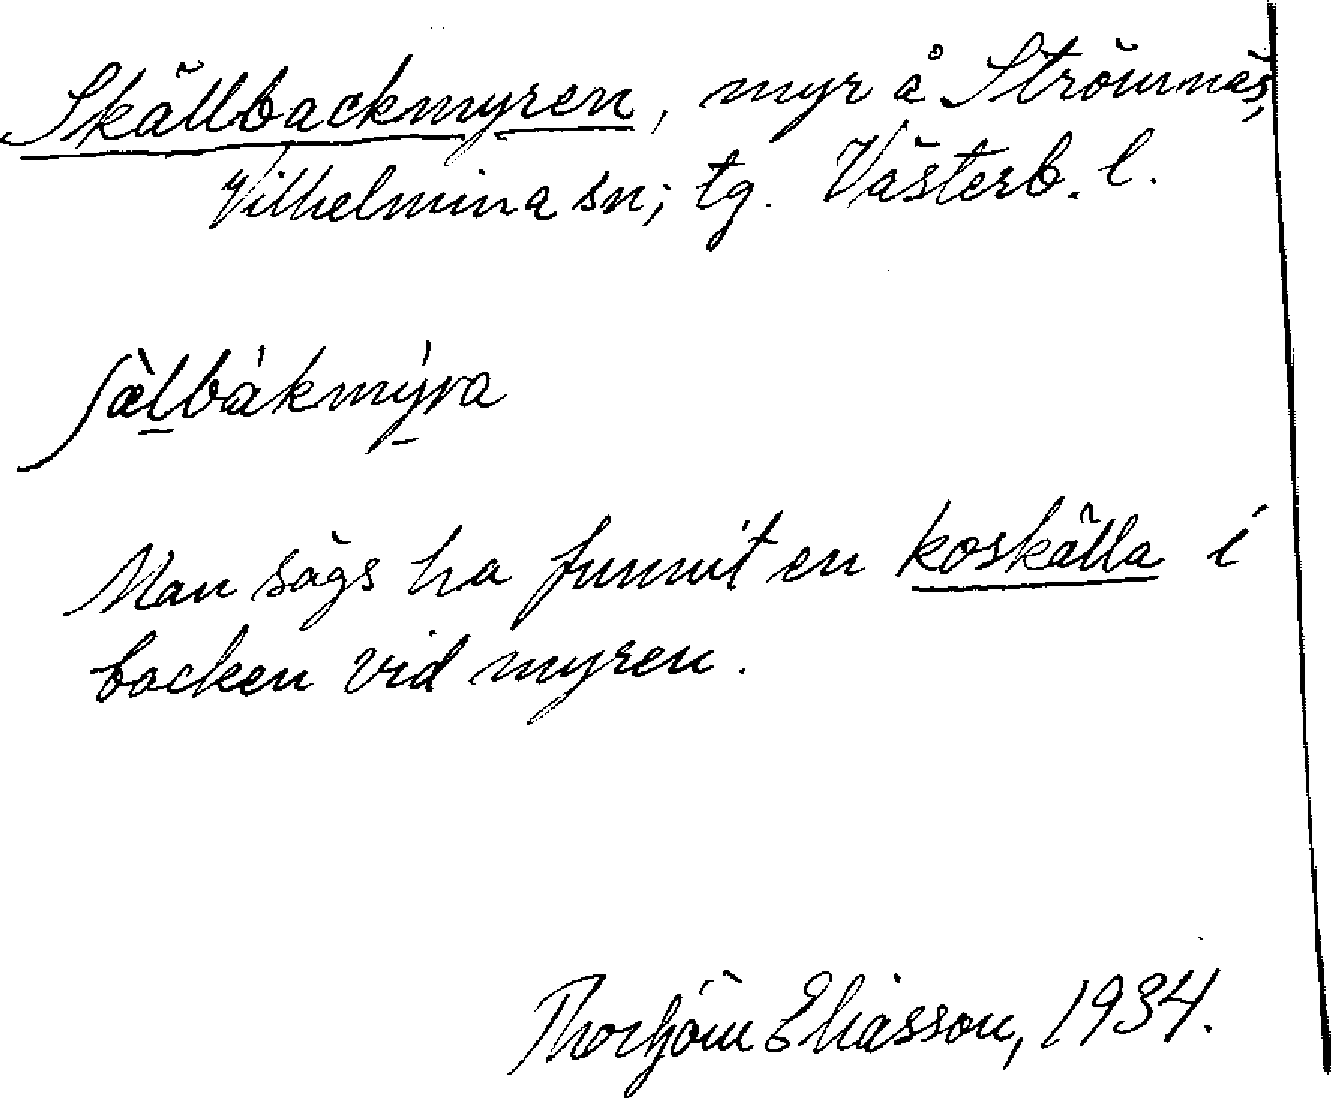 Skällbackmyren, myr å Strömnäs,
Vilhelmina sn; tg. Västerb. l.
ʃæ̀l̠bákmý̠ra
Man sägs ha funnit en koskälla i
backen vid myren.
Thorbjörn Eliasson, 1934.